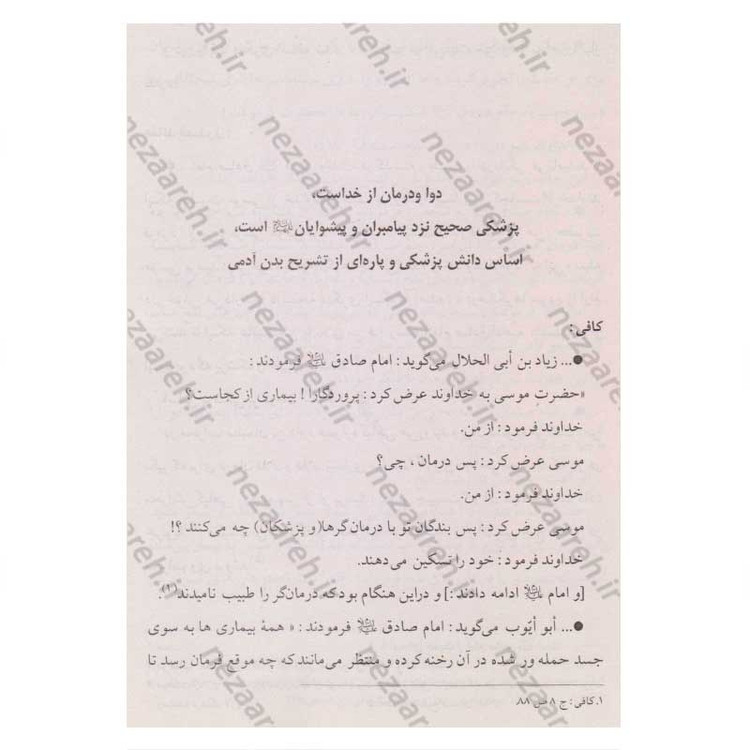 دوا ودرمان از خداست،
پزشکی صحیح نزد پیامبران و پیشوایان علیهم‌السلام است،
اساس دانش پزشکی و پاره‌ای از تشریح بدن آدمی
کافی:
●... زیاد بن أبی الحلال می‌گوید: امام صادق علیه‌السلام فرمودند:
«حضرتِ موسی به خداوند عرض کرد: پروردگارا! بیماری از کجاست؟
خداوند فرمود: از من.
موسی عرض کرد: پس درمان، چی؟
خداوند فرمود: از من.
موسی عرض کرد: پس بندگان تو با درمان‌گرها(و پزشکان) چه می‌کنند؟!
خداوند فرمود: خود را تسکین می‌دهند.
[و امام علیه‌السلام ادامه دادند:] و دراین هنگام بود که درمان‌گر را طبیب نامیدند(۱).
●... أبو أیّوب می‌گوید: امام صادق علیه‌السلام فرمودند: «همهٔ بیماری ها به سوی
جسد حمله ور شده در آن رخنه کرده و منتظر می‌مانند که چه موقع فرمان رسد تا
۱. کافی: ج ۸ ص ۸۸
nezaareh.ir